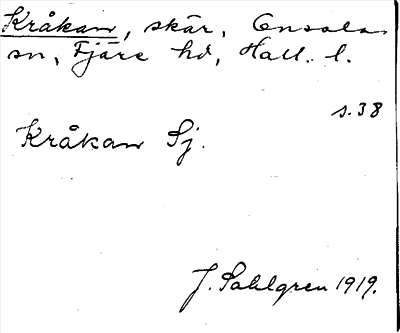 Kråkan, skär, Onsala
sn, Fjäre hd, Hall. l.
s. 38
Kråkan Sj.
J. Sahlgren 1919.